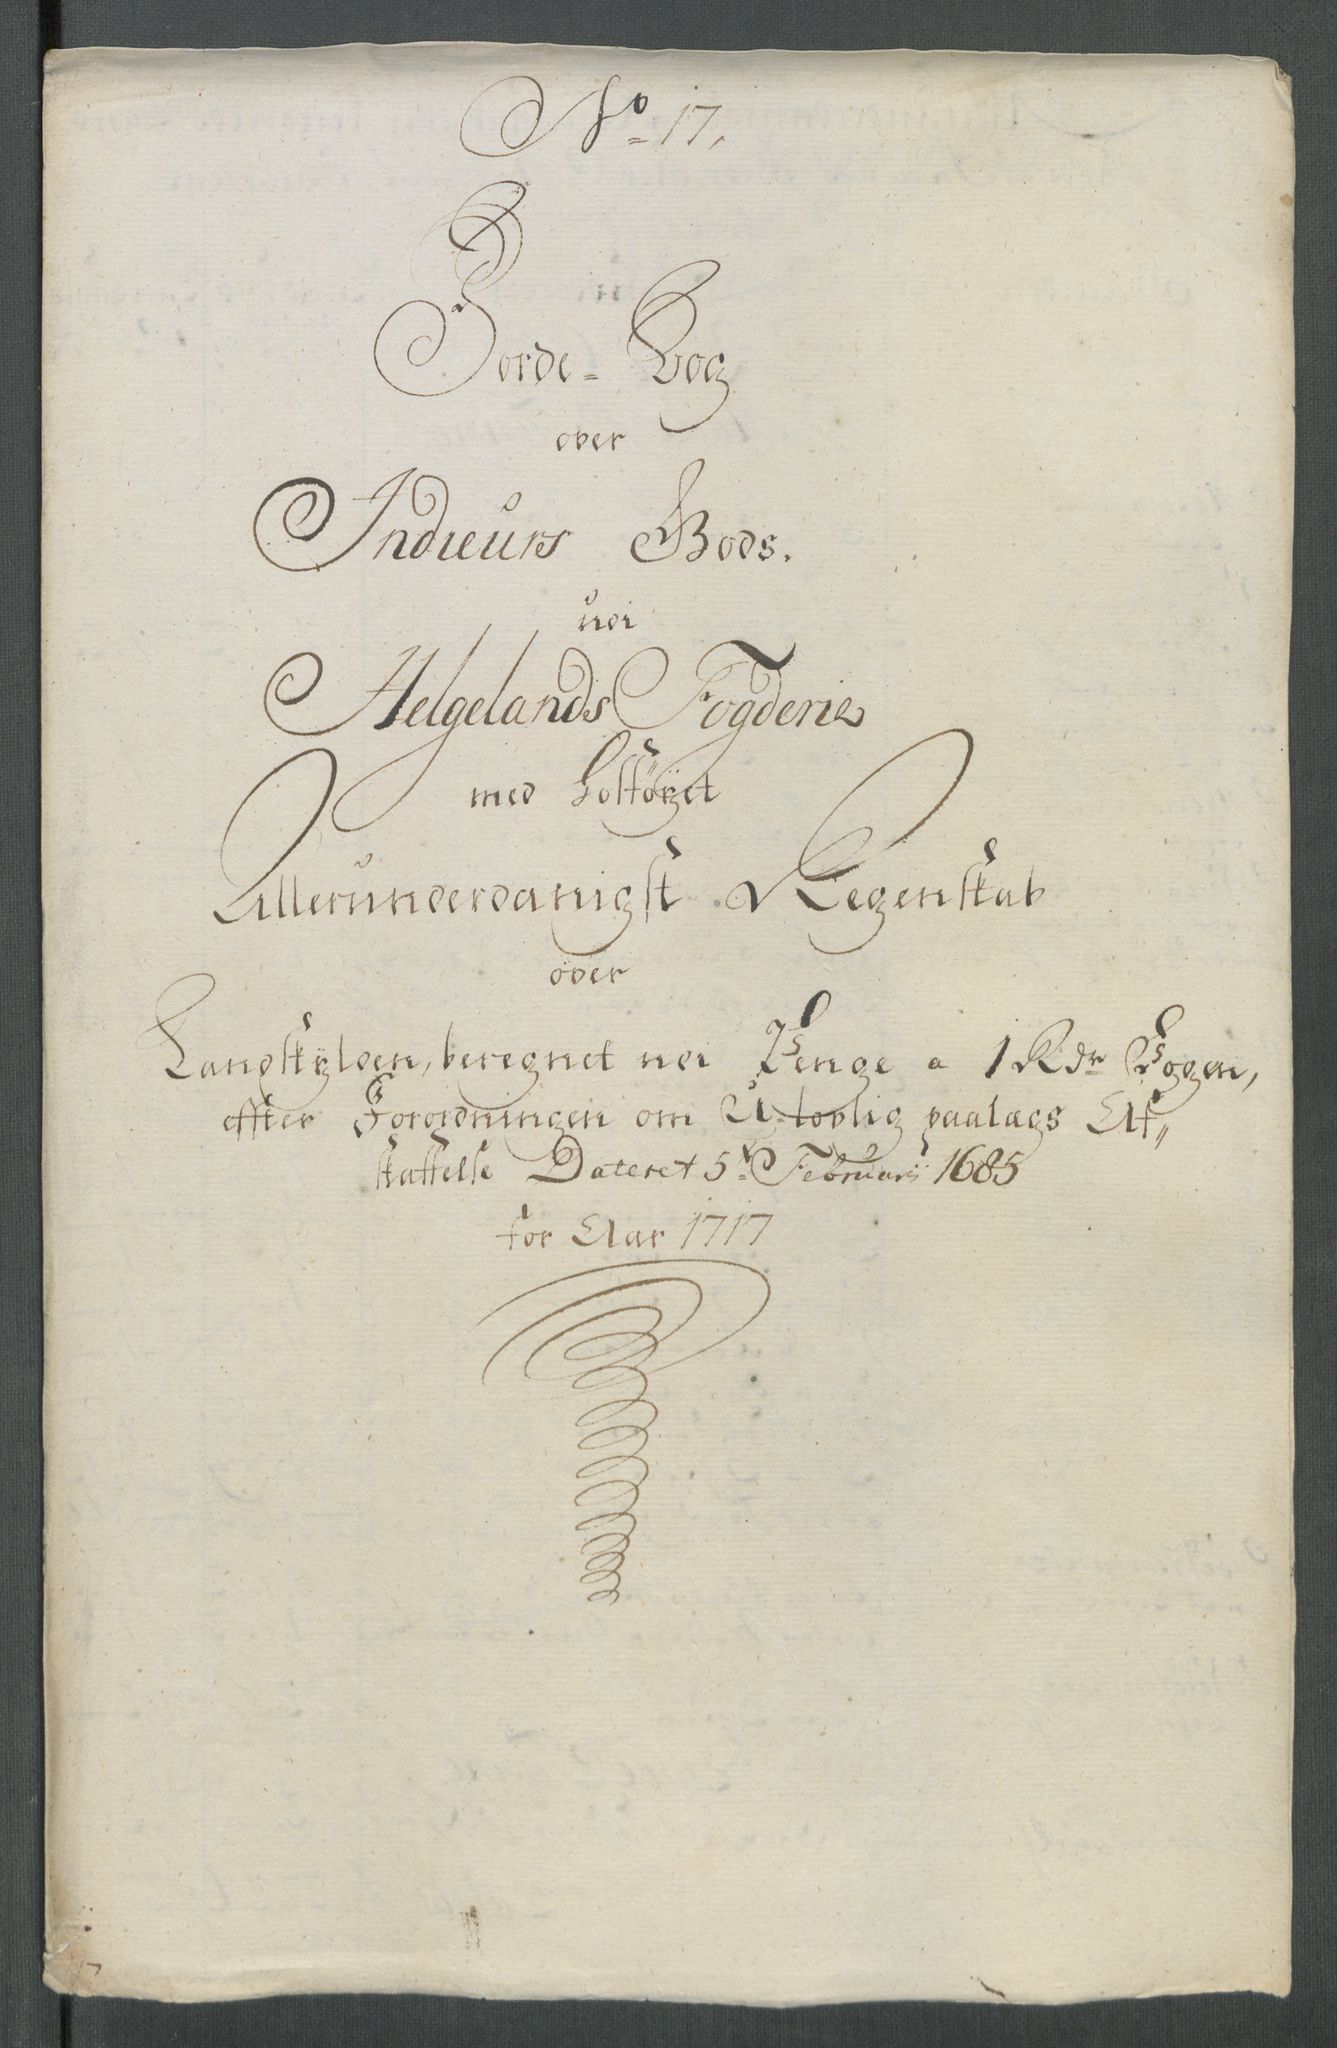 No. 17,
Jorde-Bog
over
Indieurs Gods.
udi
Helgelands Fogderie
med hosføyet
Allerunderdanigst Regenskab
over
Landskylden, beregnet udi Penge a 1 Rdr Vogen,
effter Forordningen om Utovlig paalægs Af„
skaffelse Dateret 5t Februarij 1685
for Aar 1717